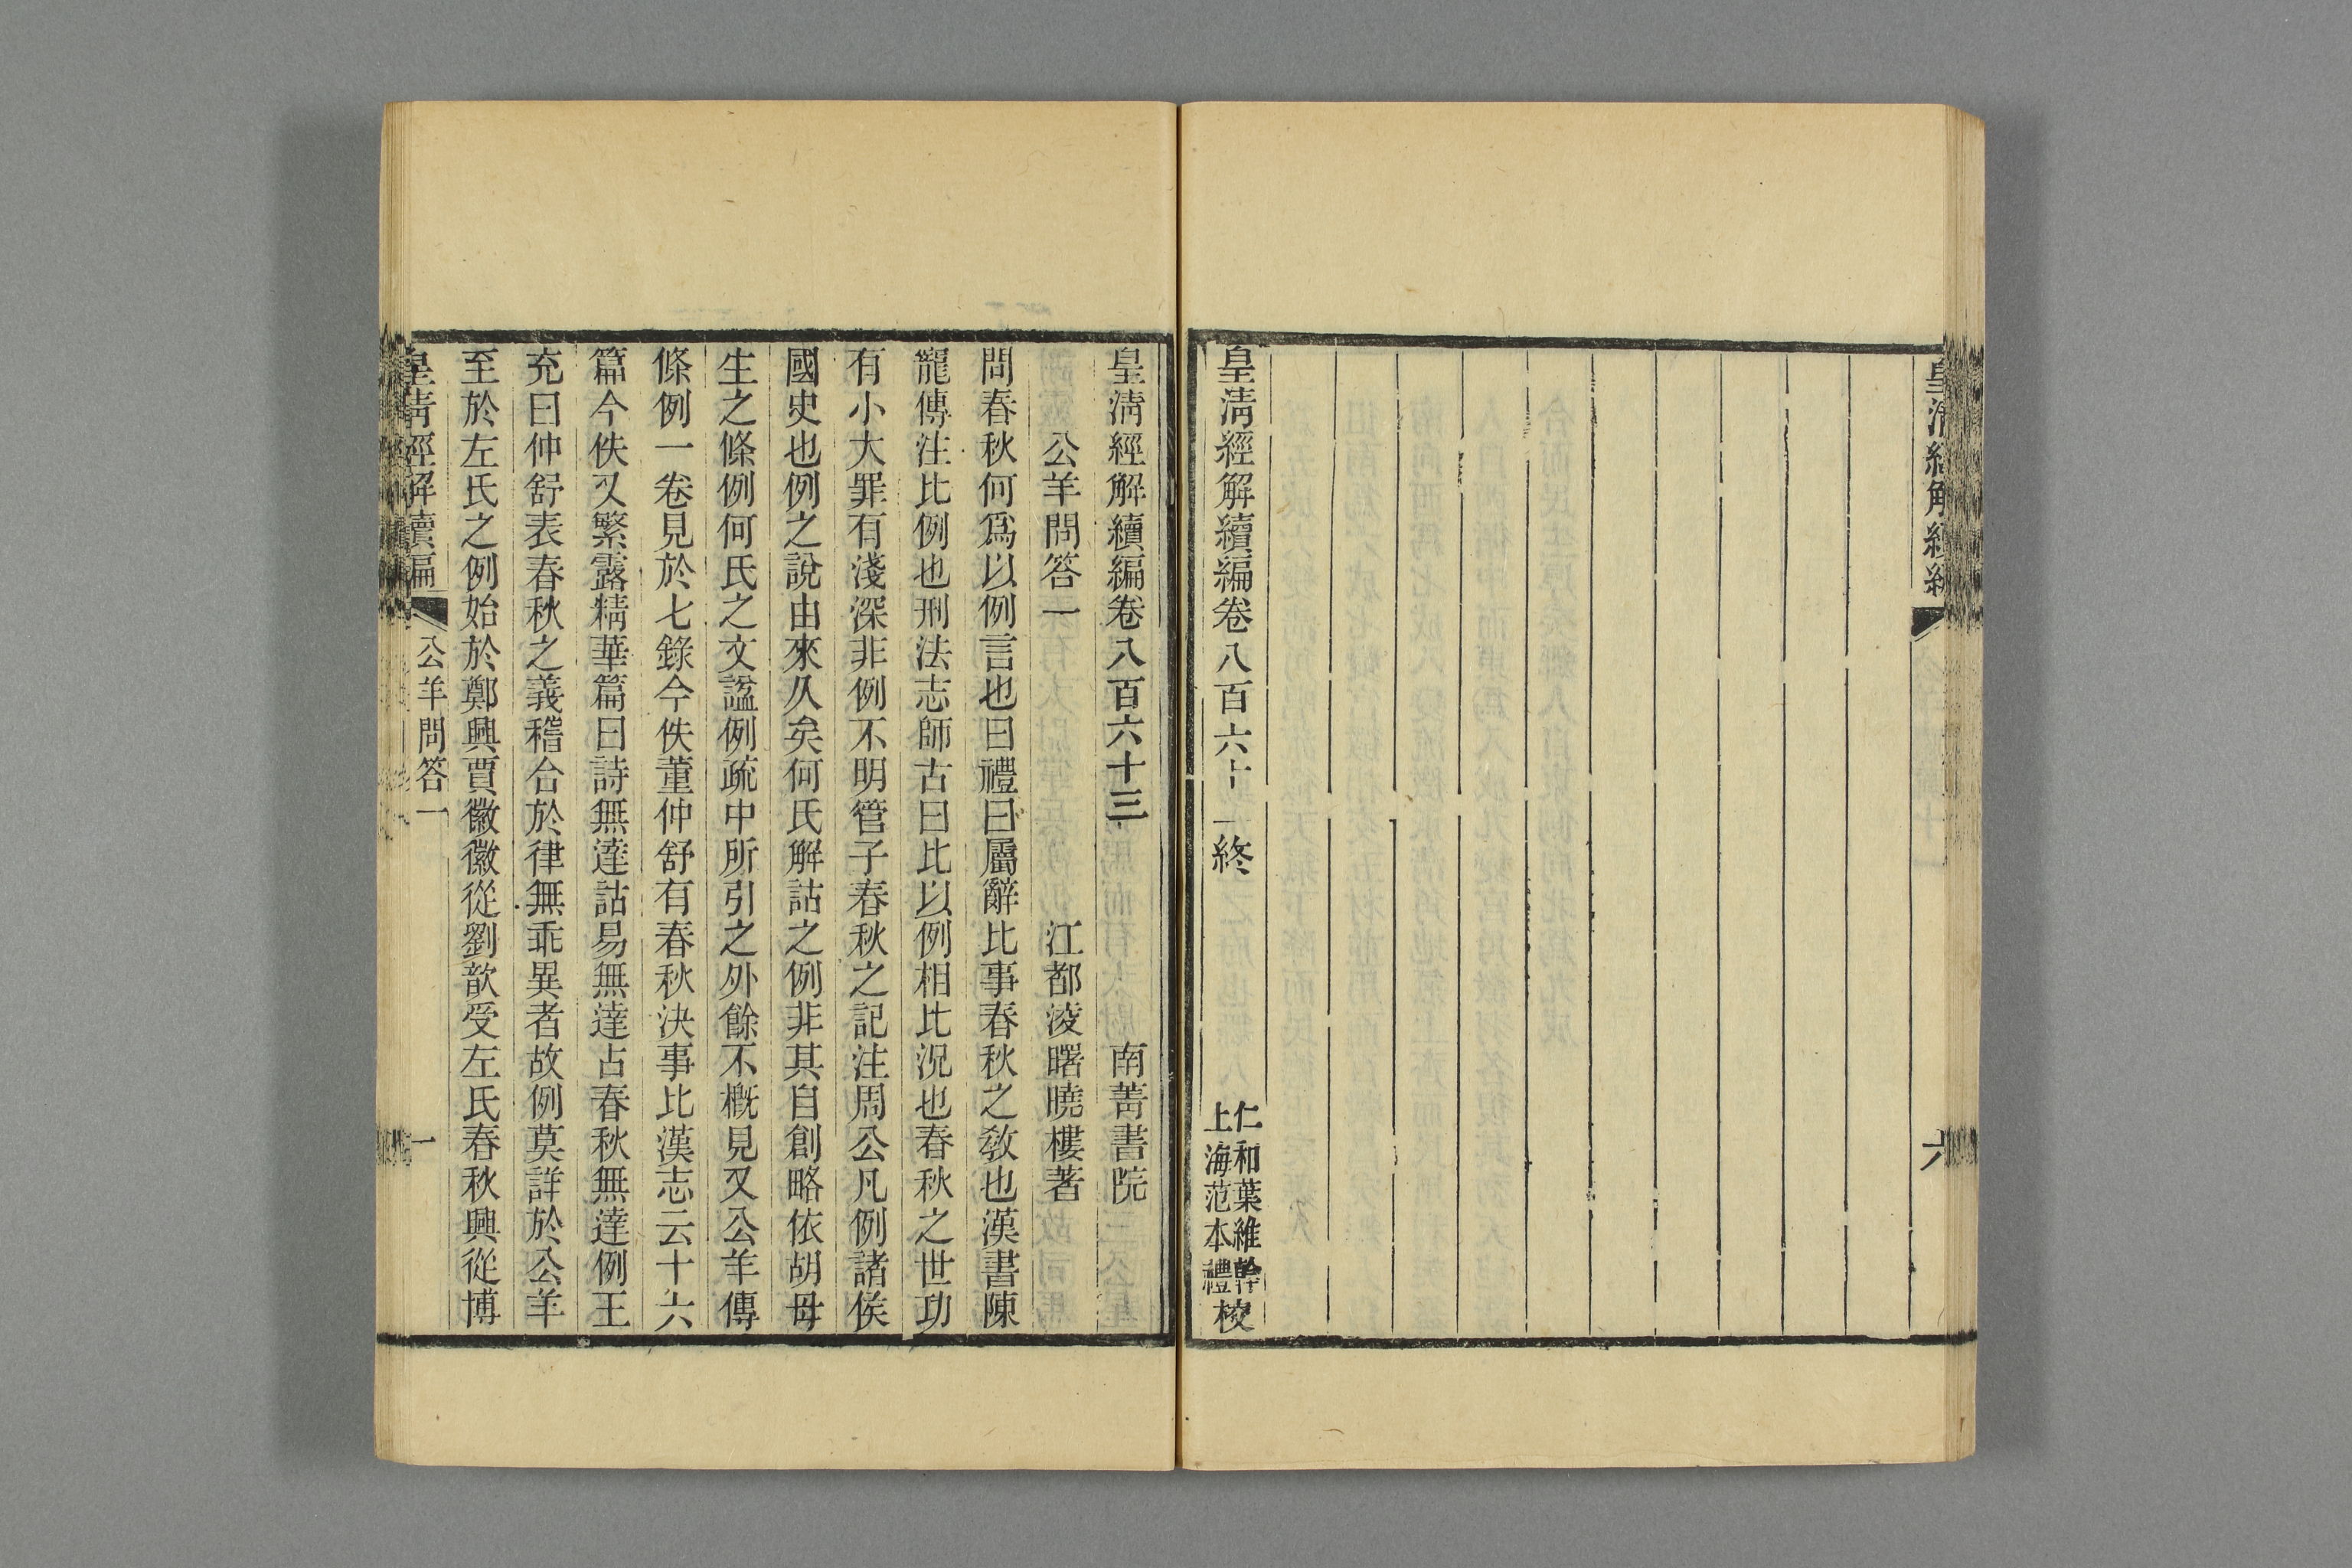 皇清經解續編
六
皇清經解續編卷八百六十一終
仁和葉維幹
上海范本禮
校
皇清經解續編卷八百六十三
南菁書院
公羊問答一
江都淩曙曉樓著
問春秋何爲以例言也曰禮曰屬辭比事春秋之敎也漢書陳
寵傳注比例也刑法志師古曰比以例相比況也春秋之世功
有小大罪有淺深非例不明管子春秋之記注周公凡例諸侯
國史也例之說由來久矣何氏解詁之例非其自創略依胡毋
生之條例何氏之文諡例疏中所引之外餘不槪見又公羊傳
條例一卷見於七錄今佚董仲舒有春秋決事比漢志云十六
篇今佚又繁露精華篇曰詩無達詁易無達占春秋無達例王
充曰仲舒表春秋之義稽合於律無乖異者故例莫詳於公羊
至於左氏之例始於鄭興賈徽徽從劉歆受左氏春秋興從博
皇清經解續編
公羊問答一
一